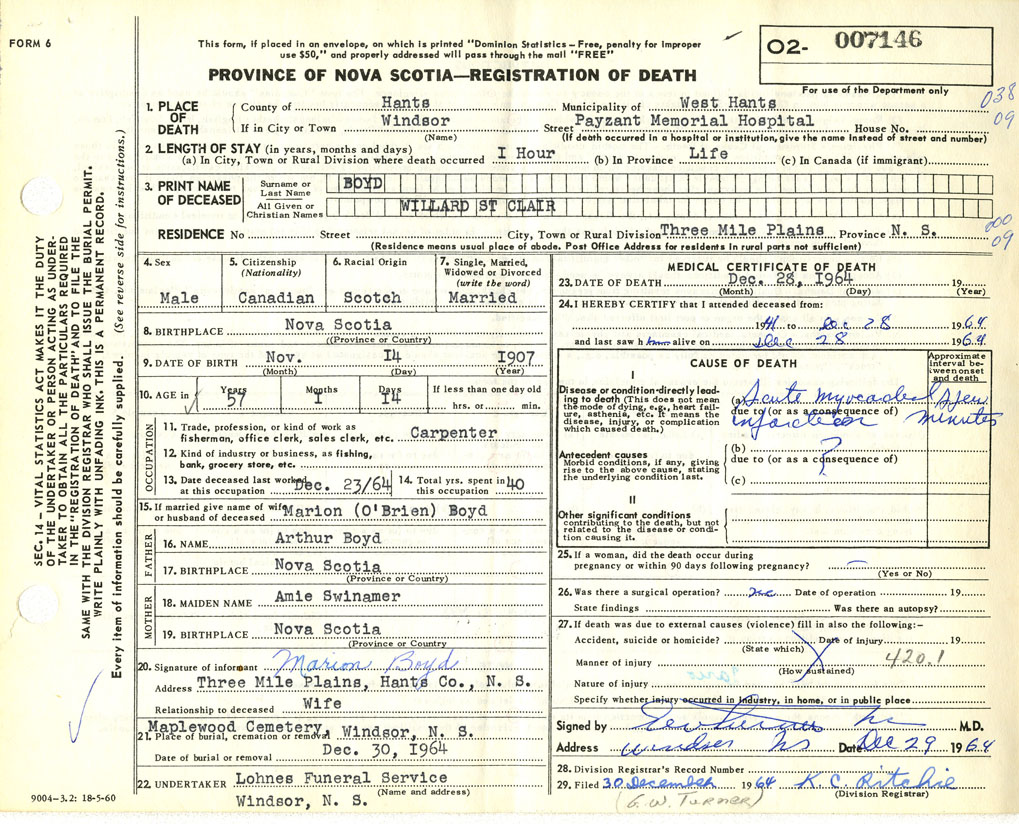 FORM 6
This form, if placed in an envelope, on which is printed "Dominion Statistics – Free, penalty for improper
use $50," and properly addressed will pass through the mail "FREE"
O2- 007146
PROVINCE OF NOVA SCOTIA—REGISTRATION OF DEATH
For use of the Department only
038
09
1. PLACE OF DEATH
County of Hants Municipality of West Hants
If in City or Town Windsor Street Payzant Memorial Hospital House No.
(Name) (If death occurred in a hospital or institution, give the name instead of street and number)
2. LENGTH OF STAY (in years, months and days)
(a) In City, Town or Rural Division where death occurred I Hour (b) In Province Life (c) In Canada (if immigrant)
3. PRINT NAME OF DECEASED
Surname or Last Name BOYD
All Given or Christian Names WILLARD ST CLAIR
000
09
RESIDENCE No Street City, Town or Rural Division Three Mile Plains Province N. S.
(Residence means usual place of abode. Post Office Address for residents in rural parts not sufficient)
4. Sex
Male
5. Citizenship
(Nationality)
Canadian
6. Racial Origin
Scotch
7. Single, Married,
Widowed or Divorced
(write the word)
Married
8. BIRTHPLACE Nova Scotia
((Province or Country)
9. DATE OF BIRTH Nov. I4 I907
(Month) (Day) (Year)
10. AGE in Years 57 Months I Days I4 If less than one day old
hrs. or min.
OCCUPATION
11. Trade, profession, or kind of work as
fisherman, office clerk, sales clerk, etc. Carpenter
12. Kind of industry or business, as fishing,
bank, grocery store, etc.
13. Date deceased last worked
at this occupation Dec. 23/64
14. Total yrs. spent in
this occupation 40
15. If married give name of wife
or husband of deceased Marion (O'Brien) Boyd
FATHER
16. NAME Arthur Boyd
17. BIRTHPLACE Nova Scotia
(Province or Country)
MOTHER
18. MAIDEN NAME Amie Swinamer
19. BIRTHPLACE Nova Scotia
(Province or Country
20. Signature of informant Marion Boyd
Address Three Mile Plains, Hants Co., N. S.
Relationship to deceased Wife
Maplewood Cemetery, Windsor, N. S.
21. Place of burial, cremation or removal
Dec. 30, I964
Date of burial or removal
22. UNDERTAKER Lohnes Funeral Service
(Name and address)
Windsor, N. S.
9004–3.2: 18-5-60
MEDICAL CERTIFICATE OF DEATH
23. DATE OF DEATH Dec. 28, I964 19
(Month) (Day) (Year)
24. I HEREBY CERTIFY that I attended deceased from:
1941 to Dec 28 1964
and last saw h him alive on Dec 28 1964
CAUSE OF DEATH
Approximate interval between onset and death
I
Disease or condition directly leading to death (This does not mean
the mode of dying, e.g., heart failure, asthenia, etc. It means the
disease, injury, or complication
which caused death.)
(a) Acute myocardial
due to (or as a consequence of)
infarction
a few minutes
Antecedent causes
Morbid conditions, if any, giving
rise to the above cause, stating
the underlying condition last.
(b) ?
due to (or as a consequence of)
(c)
II
Other significant conditions
contributing to the death, but not
related to the disease or condition causing it.
25. If a woman, did the death occur during
pregnancy or within 90 days following pregnancy? —
(Yes or No)
26. Was there a surgical operation? no Date of operation 19
State findings Was there an autopsy?
27. If death was due to external causes (violence) fill in also the following:–
Accident, suicide or homicide? Date of injury 19
(State which)
Manner of injury 420.1
(How sustained)
Nature of injury
Specify whether injury occurred in industry, in home, or in public place
Signed by M.D.
Address Windsor NS Date Dec 29 1964
28. Division Registrar's Record Number
29. Filed 30 December 1964 K. C. Ritchie
(Division Registrar)
(G. W. TURNER)
SEC. 14 – VITAL STATISTICS ACT MAKES IT THE DUTY
OF THE UNDERTAKER OR PERSON ACTING AS UNDER-
TAKER TO OBTAIN ALL THE PARTICULARS REQUIRED
IN THE "REGISTRATION OF DEATH" AND TO FILE THE
SAME WITH THE DIVISION REGISTRAR WHO SHALL ISSUE THE BURIAL PERMIT.
WRITE PLAINLY WITH UNFADING INK. THIS IS A PERMANENT RECORD.
Every item of information should be carefully supplied. (See reverse side for instructions.)